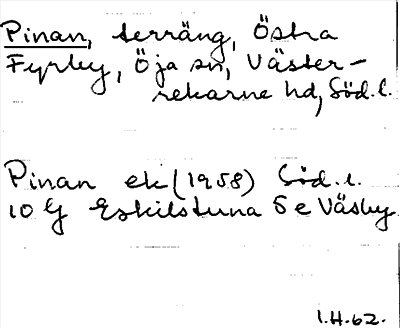 Pinan, terräng, Östra
Fyrby, Öja sn, Väster-
rekarne hd, Söd. l.
Pinan ek (1958) Söd. l.
10 G Eskilstuna S e Väsby
I.H.62.